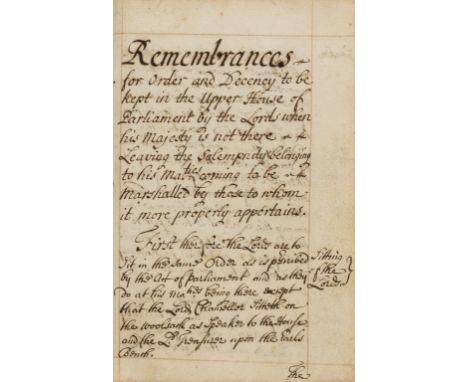 Remembrances
for Order and Decency to be
kept in the Upper House of
Parliament by the Lords when
his Majesty is not there
Leaving the Solempnity belonging
to his Matie coming to be
Marshalled by those to whom
it more properly appertains.
First therefore the Lords are to
Sit in the same Order as is prscribed
by the Act of Parliament and as they
do at his Maties being there except
that the Lord Chancellor sitteth on
the woolsack as Speaker to the House
and the Ld Treasurer upon the Earls
Bench.
Sitting
of the
Lords
The